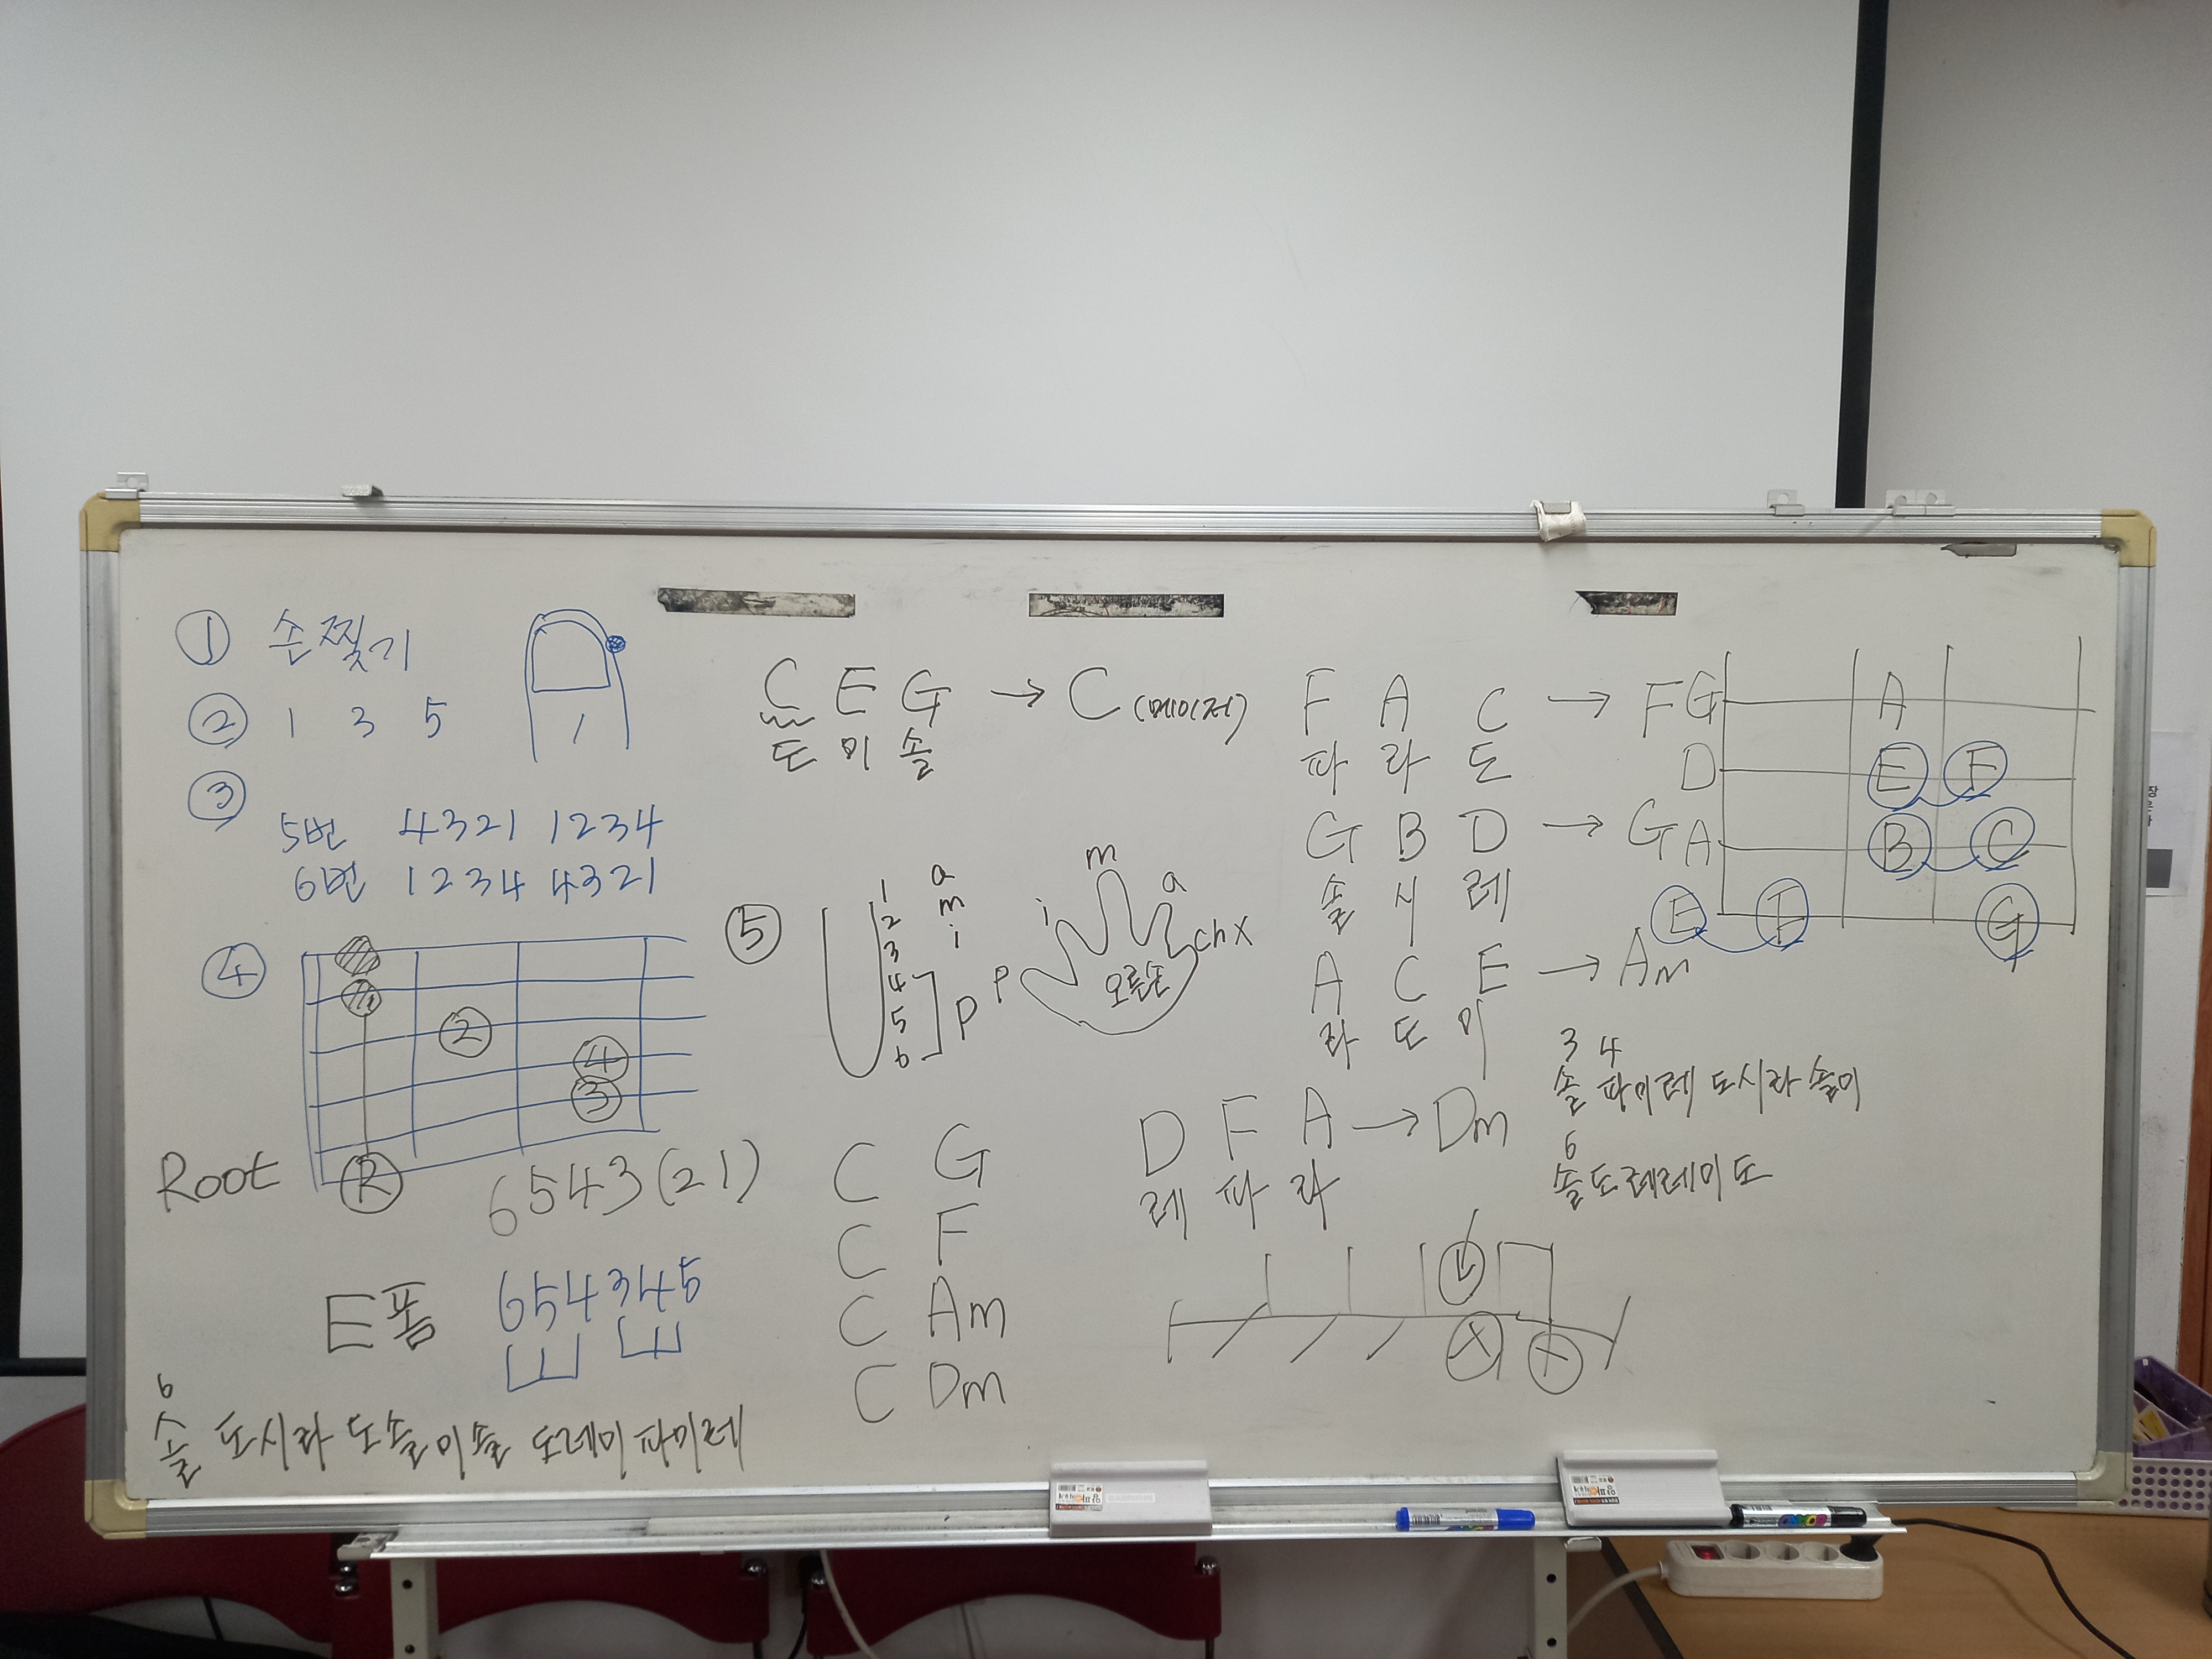 ① 손찢기
② 1 3 5
1
③
5번 4321 1234
6번 1234 4321
④
2
4
3
Root R
6543(21)
E폼 654345
6
솔 도시라 도솔미솔 도레미 파미레
C E G → C (메이저)
도 미 솔
⑤
1 a
2 m
3 i
4
5 P
6
P i m a ch X
오른손
C G
C F
C Am
C Dm
F A C → F
파 라 도
G B D → G
솔 시 레
A C E → Am
라 도 미
D F A → Dm
레 파 라
G A
D E F
A B C
E F G
3 4
솔 파미레 도시라 솔미
6
솔도레레미도